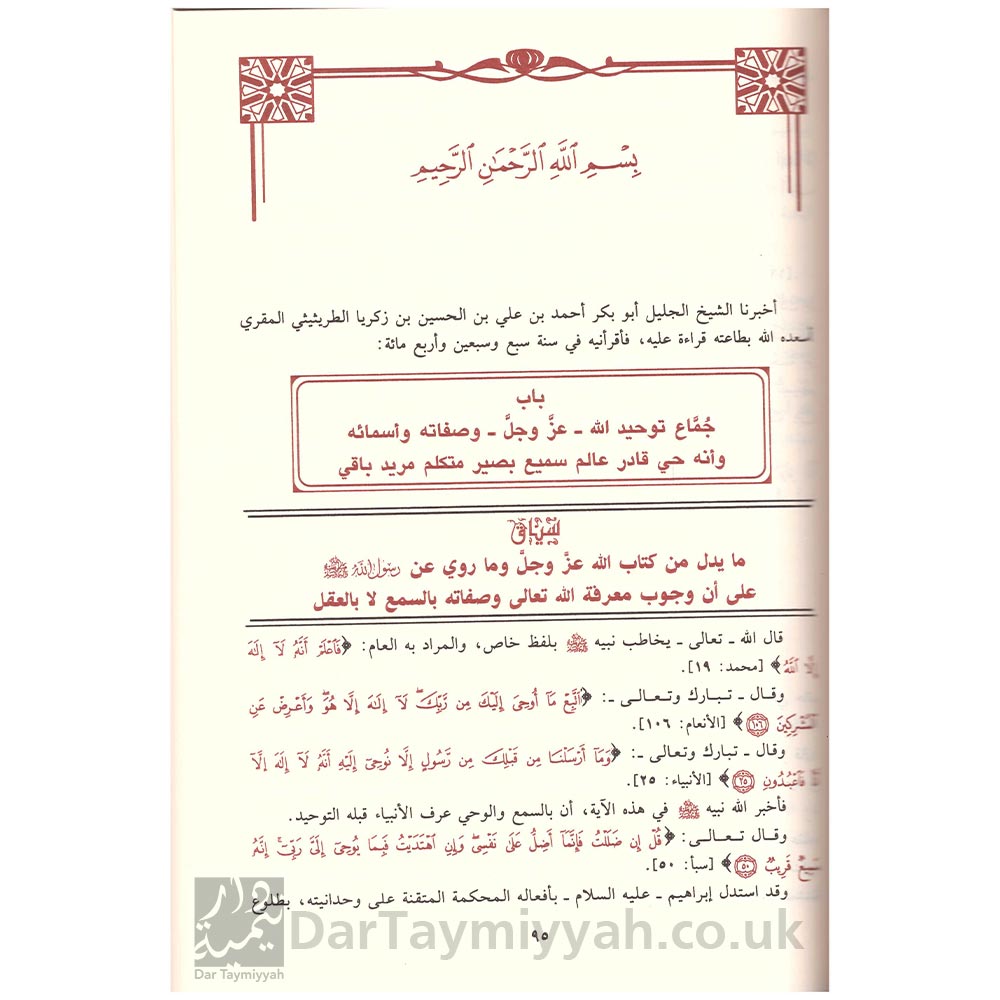 بِسْمِ ٱللَّهِ ٱلرَّحْمَٰنِ ٱلرَّحِيمِ
أخبرنا الشيخ الجليل أبو بكر أحمد بن علي بن الحسين بن زكريا الطريثيثي المقري
أسعده الله بطاعته قراءة عليه، فأقرأنيه في سنة سبع وسبعين وأربع مائة:
باب
جُمَّاع توحيد الله ـ عزَّ وجلَّ ـ وصفاته وأسمائه
وأنه حي قادر عالم سميع بصير متكلم مريد باقي
سياق
ما يدل من كتاب الله عزَّ وجلَّ وما روي عن رسول الله ﷺ
على أن وجوب معرفة الله تعالى وصفاته بالسمع لا بالعقل
قال الله ـ تعالى ـ يخاطب نبيه ﷺ بلفظ خاص، والمراد به العام: ﴿فَٱعْلَمْ أَنَّهُۥ لَآ إِلَٰهَ
إِلَّا ٱللَّهُ﴾ [محمد: ١٩].
وقال ـ تبارك وتعالى ـ: ﴿ٱتَّبِعْ مَآ أُوحِىَ إِلَيْكَ مِن رَّبِّكَ ۖ لَآ إِلَٰهَ إِلَّا هُوَ ۖ وَأَعْرِضْ عَنِ
ٱلْمُشْرِكِينَ ١٠٦﴾ [الأنعام: ١٠٦].
وقال ـ تبارك وتعالى ـ: ﴿وَمَآ أَرْسَلْنَا مِن قَبْلِكَ مِن رَّسُولٍ إِلَّا نُوحِىٓ إِلَيْهِ أَنَّهُۥ لَآ إِلَٰهَ إِلَّآ
أَنَا۠ فَٱعْبُدُونِ ٢٥﴾ [الأنبياء: ٢٥].
فأخبر الله نبيه ﷺ في هذه الآية، أن بالسمع والوحي عرف الأنبياء قبله التوحيد.
وقال تعالى: ﴿قُلْ إِن ضَلَلْتُ فَإِنَّمَآ أَضِلُّ عَلَىٰ نَفْسِى ۖ وَإِنِ ٱهْتَدَيْتُ فَبِمَا يُوحِىٓ إِلَىَّ رَبِّىٓ ۚ إِنَّهُۥ
سَمِيعٌ قَرِيبٌ ٥٠﴾ [سبأ: ٥٠].
وقد استدل إبراهيم ـ عليه السلام ـ بأفعاله المحكمة المتقنة على وحدانيته، بطلوع
٩٥
دار تيمية
Dar Taymiyyah
DarTaymiyyah.co.uk